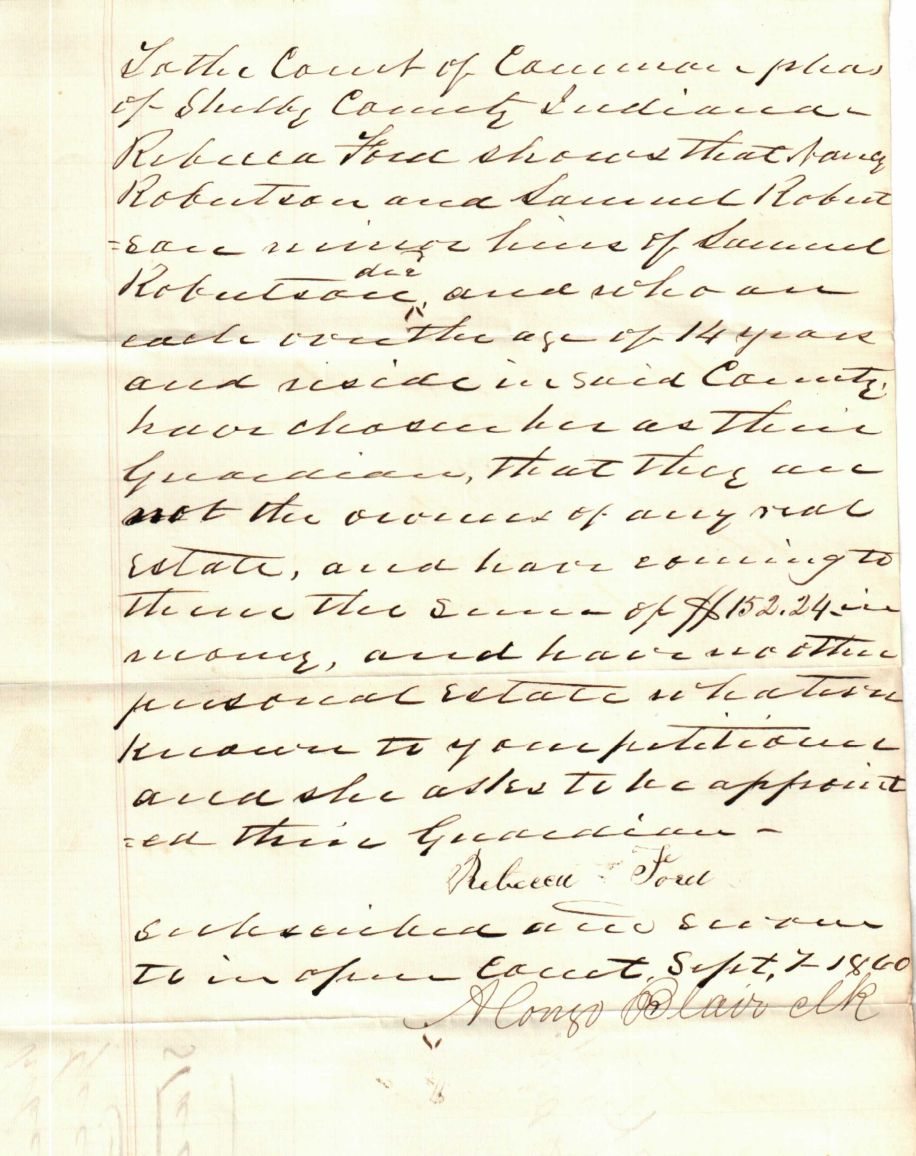 To the Court of Common pleas
of Shelby County Indiana -
Rebecca Ford shows that Nancy
Robertson and Samuel Robert
=son minor heirs of Samuel
Robertson, decd and who are
each over the age of 14 years
and reside in said County,
have chosen her as their
Guardian, that they are
not the owners of any real
Estate, and have coming to
them the sum of $152.24 in
money, and have no other
personal Estate whatever
known to your petitioner
and she asks to be appoint
=ed their Guardian -
Rebecca Ford
Subscribed and sworn
to in open Court, Sept, 7 1860
Alonzo Blair clk